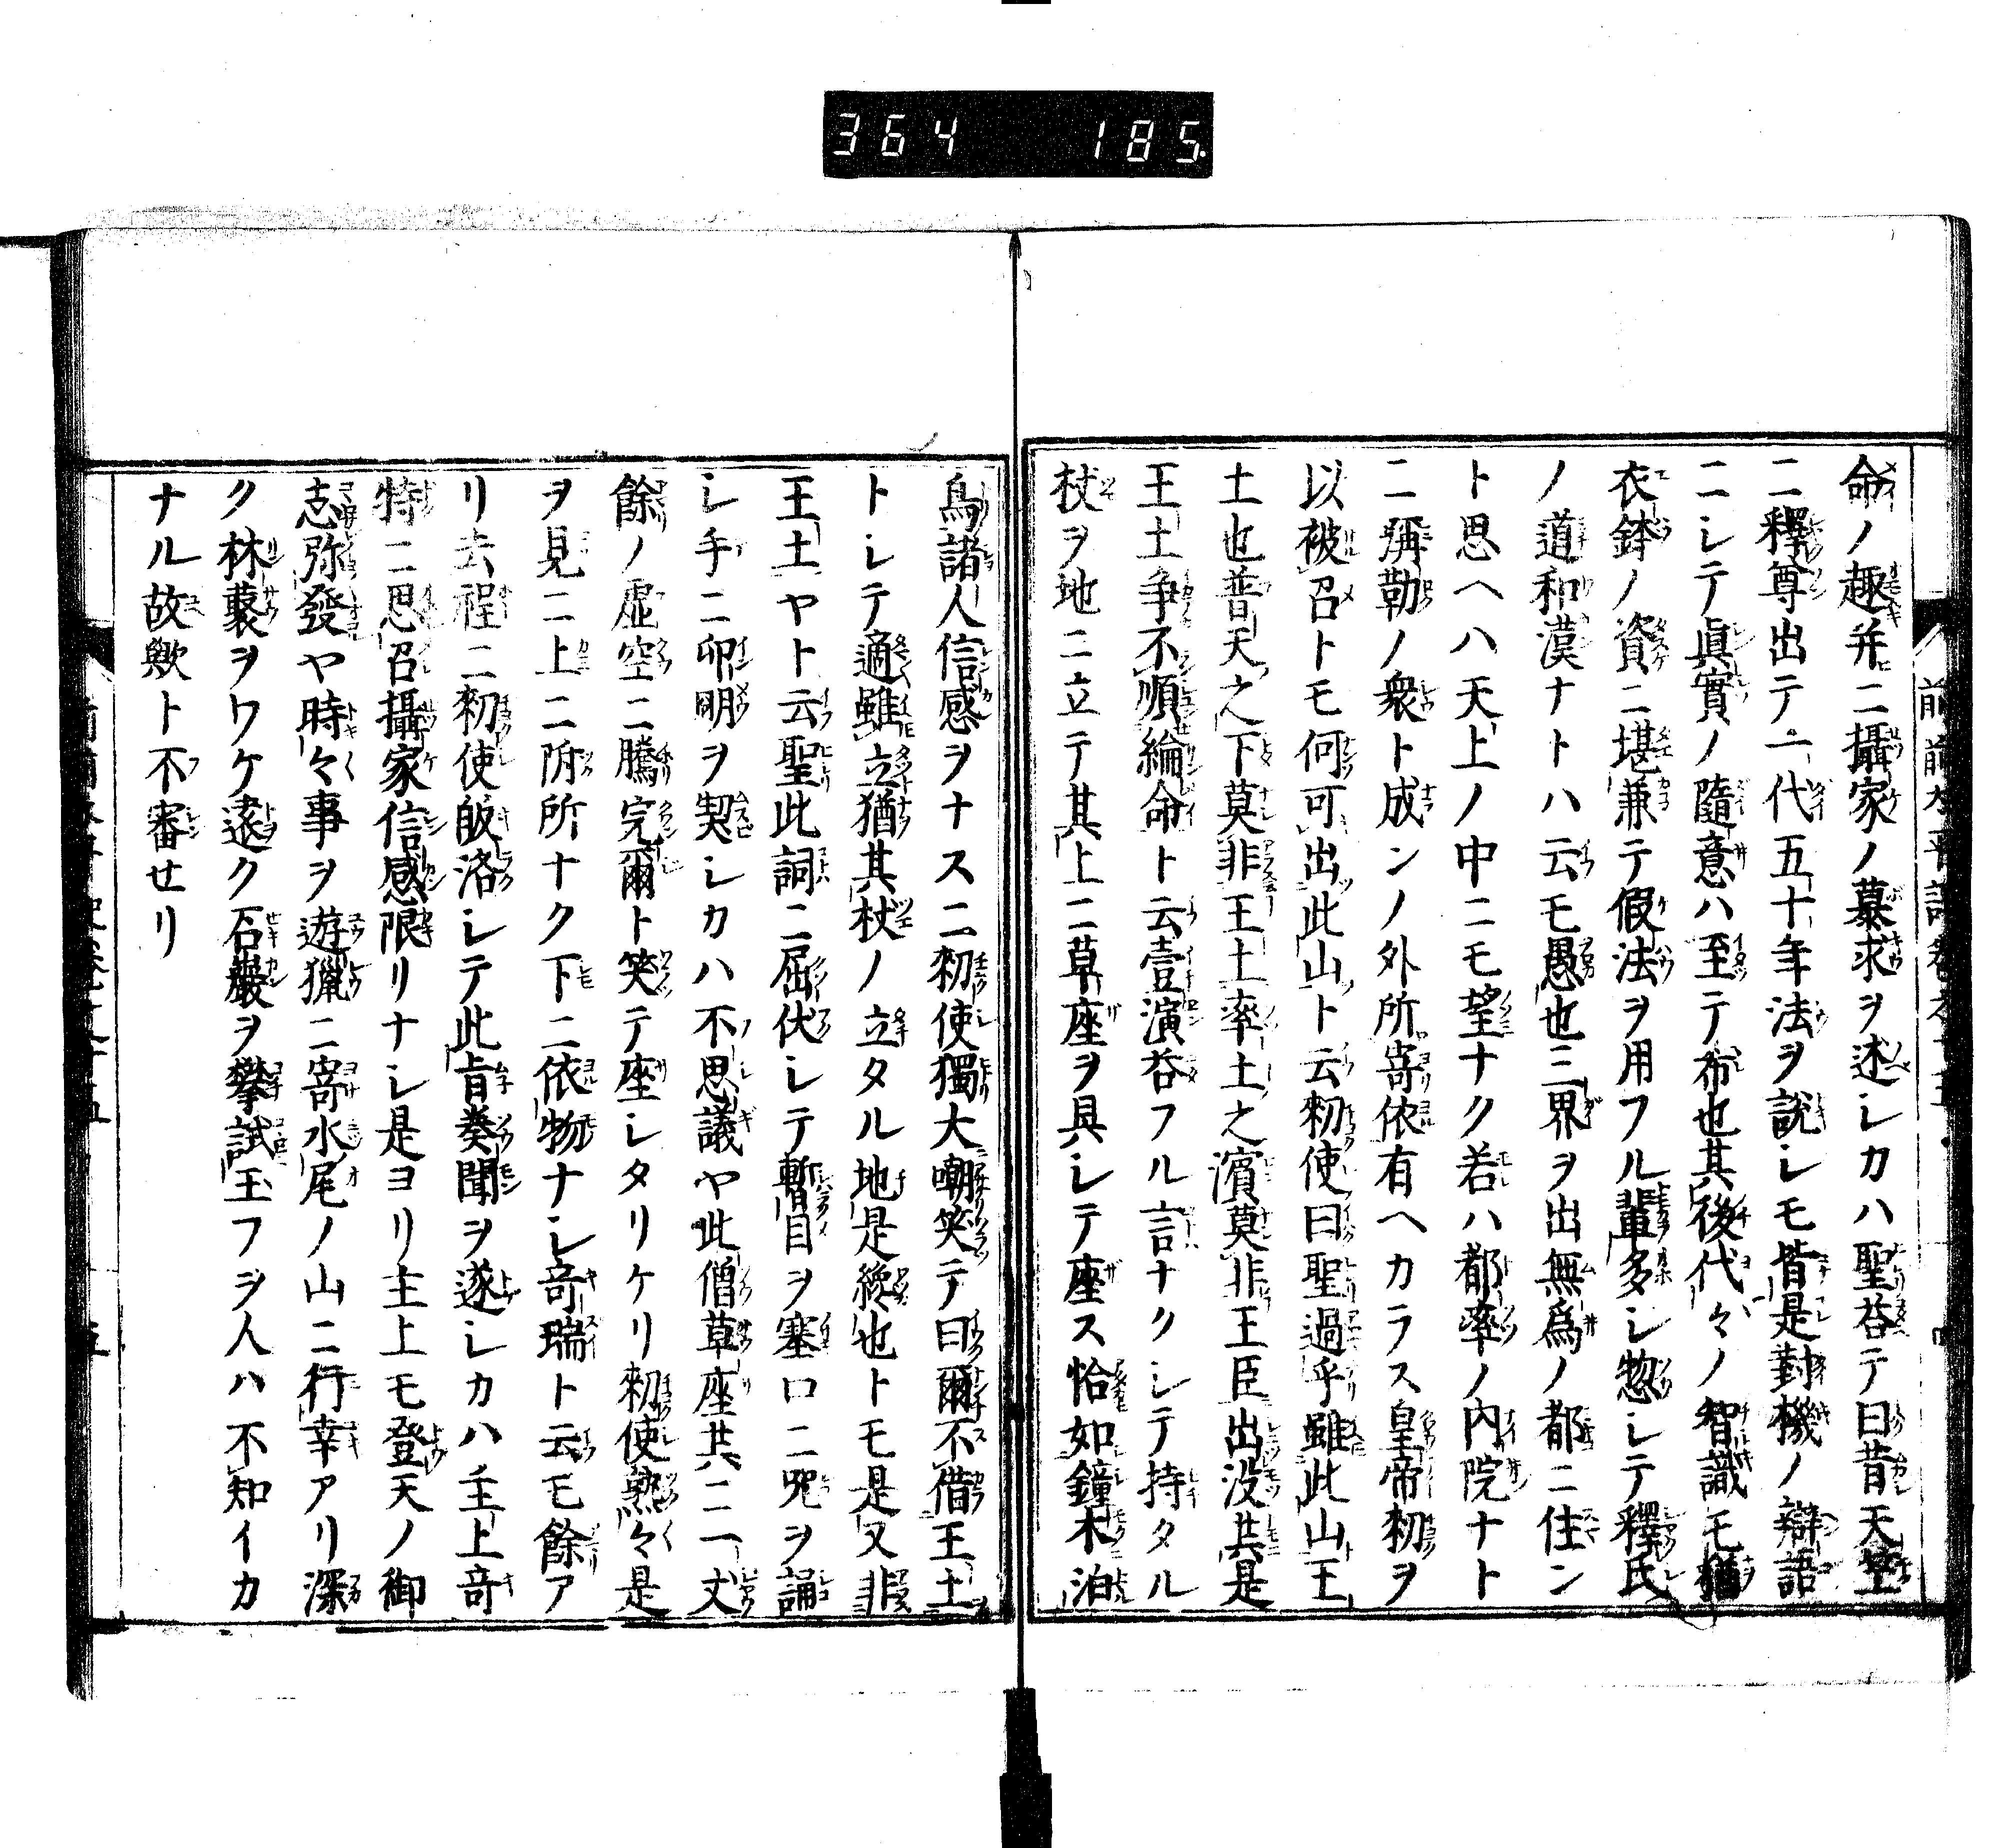 364 185.
命ノ趣并ニ攝家ノ募求ヲ述シカハ聖荅テ曰昔天竺
ニ釋尊出テ一代五十年法ヲ說シモ皆是對機ノ辯語
ニシテ眞實ノ隨意ハ至テ布也其後代々ノ智識モ猶
衣鉢ノ資ニ堪兼テ假法ヲ用フル輩多シ惣シテ釋氏
ノ道和漢ナトハ云モ愚也三界ヲ出無爲ノ都ニ住ン
ト思ヘハ天上ノ中ニモ望ナク若ハ都率ノ內院ナト
ニ弥勒ノ衆ト成ンノ外所寄依有ヘカラス皇帝勅ヲ
以被召トモ何可出此山ト云勅使曰聖過乎雖此山王
土也普天之下莫非王土率土之濱莫非王臣出没共是
王土争不順綸命ト云壹演呑フル言ナクシテ持タル
杖ヲ地ニ立テ其上ニ草座ヲ具シテ座ス恰如鐘木泊
鳥諸人信感ヲナスニ勅使獨大嘲笑テ曰爾不借王土
トシテ適雖立猶其杖ノ立タル地是縿也トモ是又非
王土ヤト云聖此詞ニ屈伏シテ暫目ヲ塞口ニ咒ヲ誦
シ手ニ印明ヲ契シカハ不思議ヤ此僧草座共ニ一丈
餘ノ虛空ニ騰完爾ト笑テ座シタリケリ勅使熟々是
ヲ見ニ上ニ所所ナク下ニ依物ナシ竒瑞ト云モ餘ア
リ去程ニ勅使皈洛シテ此旨奏聞ヲ遂シカハ主上竒
特ニ思召攝家信感限リナシ是ヨリ主上モ登天ノ御
志弥發ヤ時々事ヲ遊獵ニ寄水尾ノ山ニ行幸アリ深
ク林藂ヲワケ遠ク石巖ヲ攀試玉フヲ人ハ不知イカ
ナル故歟ト不審セリ